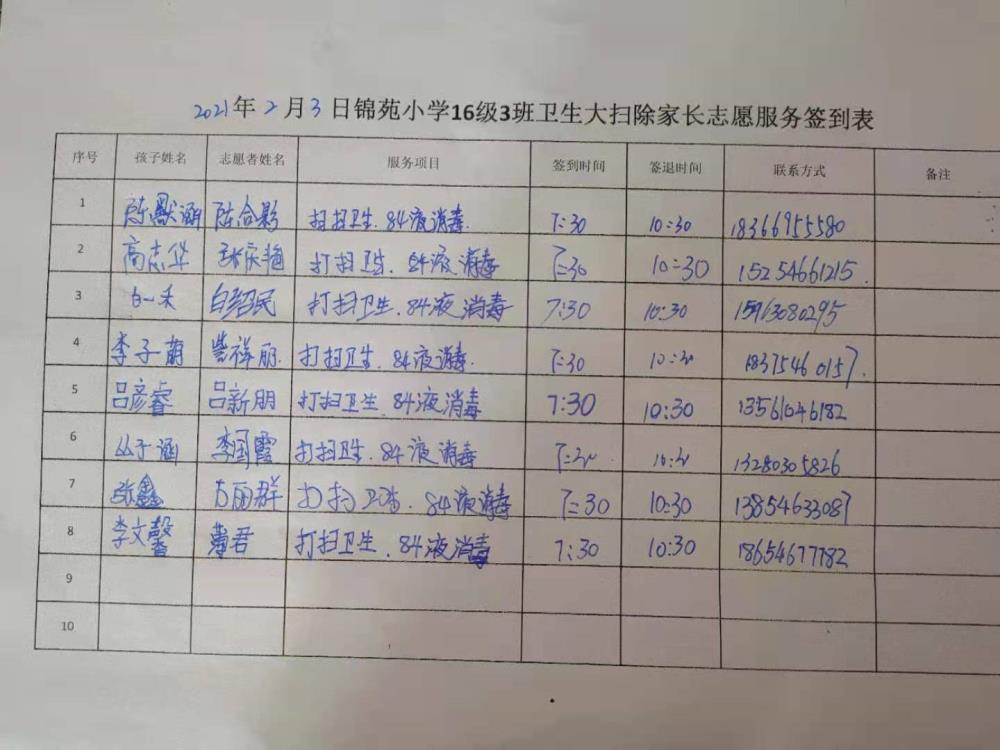 2021年2月3日锦苑小学16级3班卫生大扫除家长志愿服务签到表
序号 孩子姓名 志愿者姓名 服务项目 签到时间 签退时间 联系方式 备注
1 陈 涵 陈合彩 打扫卫生、84液消毒 7:30 10:30 18366955580
2 高志华 张庆梅 打扫卫生、84液消毒 7:30 10:30 15254661215
3 白一禾 白绍民 打扫卫生、84液消毒 7:30 10:30 15963080295
4 李子萌 祥丽 打扫卫生、84液消毒 7:30 10:30 18375460157
5 吕彦睿 吕新朋 打扫卫生、84液消毒 7:30 10:30 13561046182
6 丛子涵 李国霞 打扫卫生、84液消毒 7:30 10:30 13280305826
7 张鑫 丽群 打扫卫生、84液消毒 7:30 10:30 13854633087
8 李文馨 薄君 打扫卫生、84液消毒 7:30 10:30 18654677782
9
10